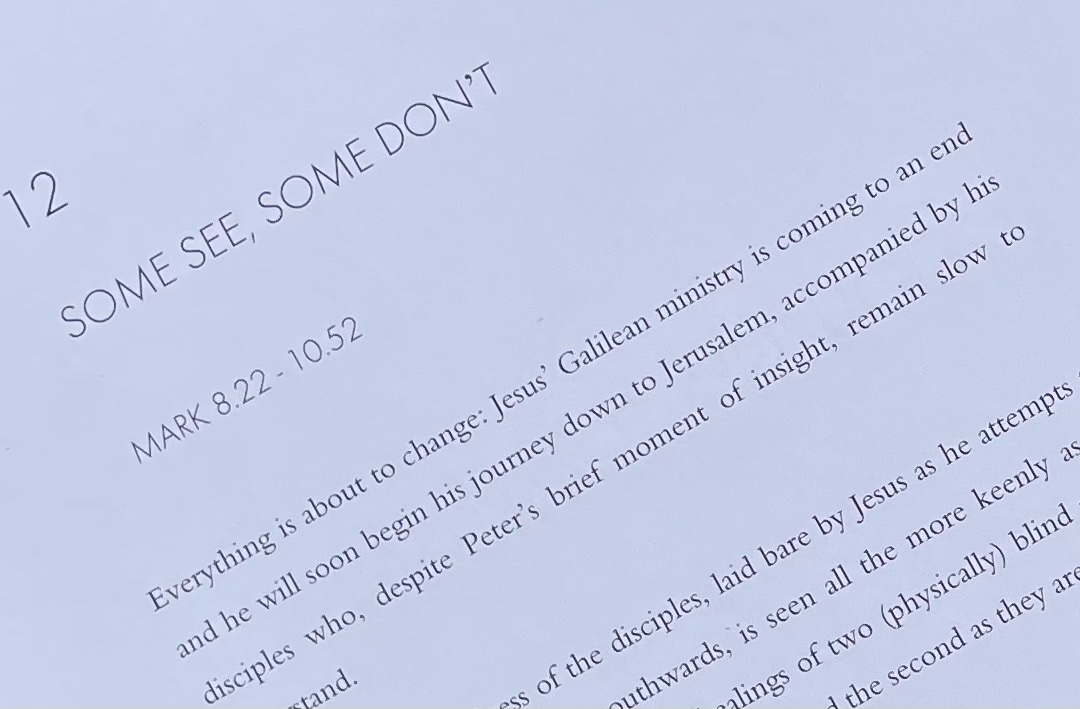 12
SOME SEE, SOME DON'T
MARK 8.22 - 10.52
Everything is about to change: Jesus' Galilean ministry is coming to an end
and he will soon begin his journey down to Jerusalem, accompanied by his
disciples who, despite Peter's brief moment of insight, remain slow to
stand.
ess of the disciples, laid bare by Jesus as he attempts
outhwards, is seen all the more keenly as
ealings of two (physically) blind
d the second as they are